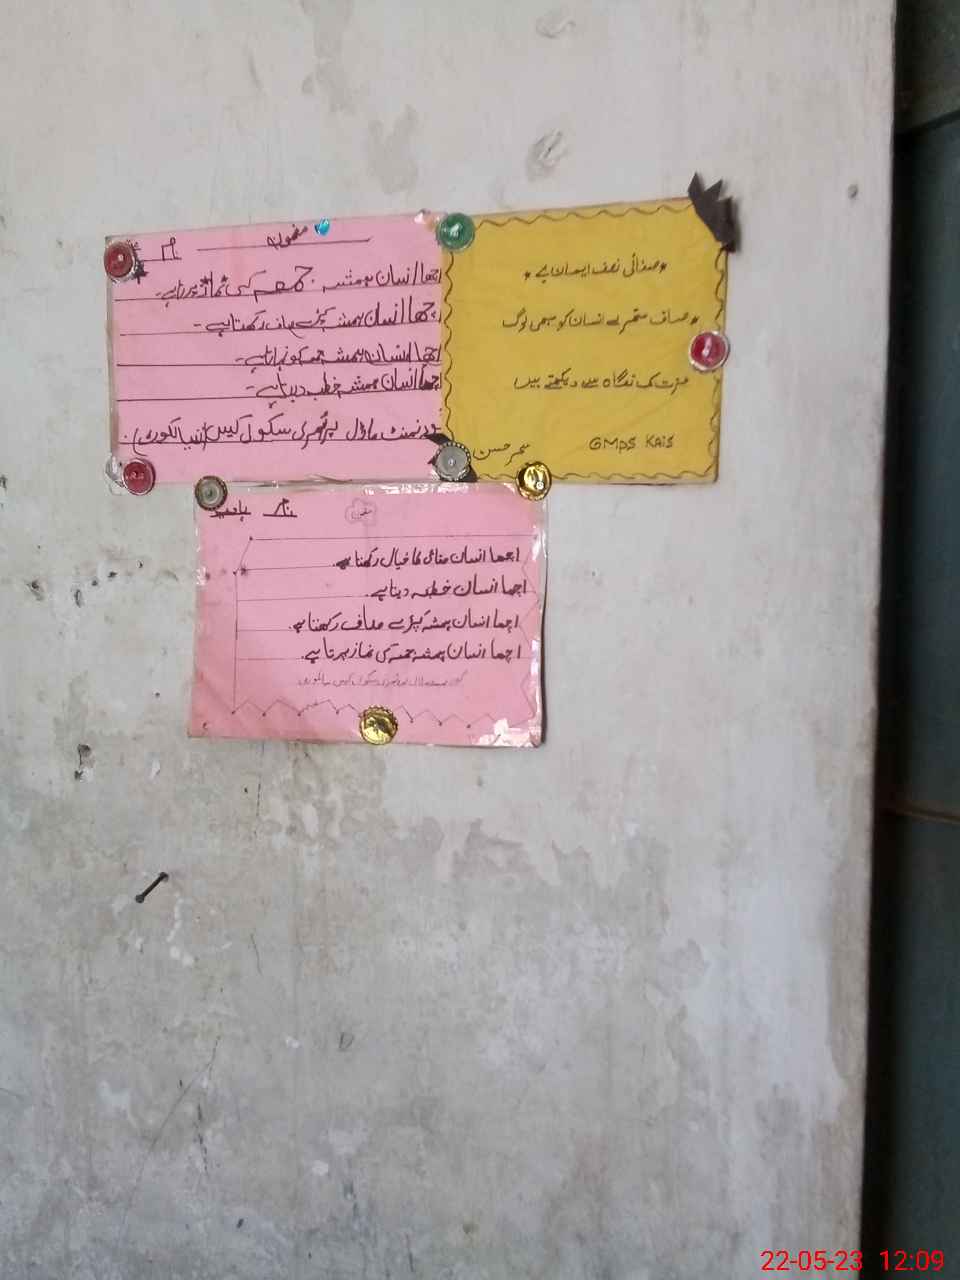 نام
اچھا انسان ہمیشہ جمعہ کی نماز پڑتا ہے۔
اچھا انسان ہمیشہ کپڑے صاف رکھتا ہے۔
اچھا انسان ہمیشہ جمعہ کو نہاتا ہے۔
اچھا انسان ہمیشہ خطبہ دیتا ہے۔
گورنمنٹ ماڈل پرائمری سکول کیس
*صفائی نصف ایمان ہے*
*صاف ستھرے انسان کو سبھی لوگ
عزت کی نگاہ سے دیکھتے ہیں
سحر حسن
GMPS KAIS
نام
اچھا انسان صفائی کا خیال رکھتا ہے۔
اچھا انسان خطبہ دیتا ہے۔
اچھا انسان ہمیشہ کپڑے صاف رکھتا ہے۔
اچھا انسان ہمیشہ جمعہ کی نماز پڑتا ہے۔
22-05-23 12:09